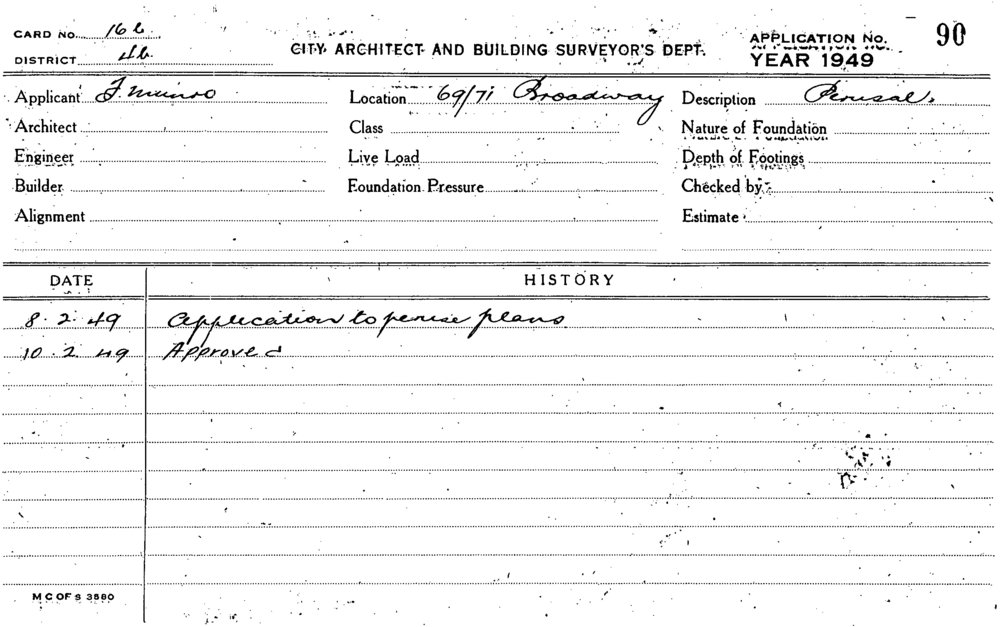 CARD NO. 16b
DISTRICT 4b.
CITY ARCHITECT AND BUILDING SURVEYOR'S DEPT.
APPLICATION No. 90
YEAR 1949
Applicant F. Munro Location 69/71 Broadway Description Perusal.
Architect Class Nature of Foundation
Engineer Live Load Depth of Footings
Builder Foundation Pressure Checked by
Alignment Estimate
DATE HISTORY
8. 2. 49 Application to peruse plans
10. 2. 49 Approved
M C OF S 3580